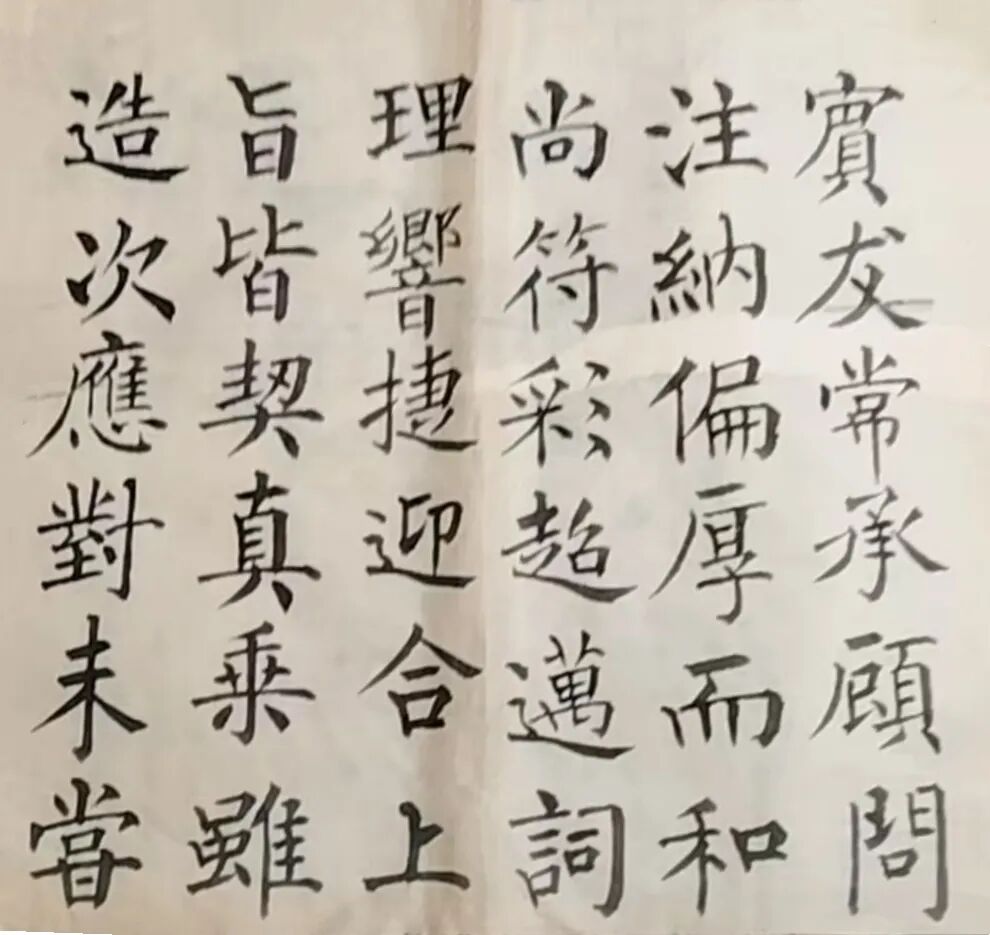 賓友常承顧問
注納偏厚而和
尚符彩超邁詞
理響捷迎合上
旨皆契真乘雖
造次應對未嘗